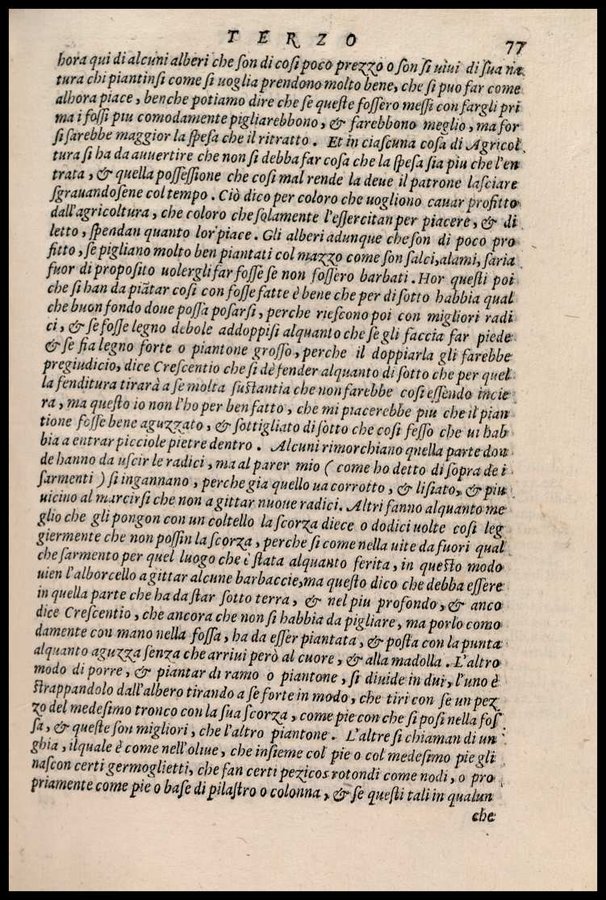 TERZO 77
hora qui di alcuni alberi che son di cosi poco prezzo o son si uiui di sua na
tura chi piantinsi come si uoglia prendono molto bene, che si puo far come
alhora piace, benche potiamo dire che se queste fossero messi con fargli pri
ma i fossi piu comodamente pigliarebbono, & farebbono meglio, ma for
si sarebbe maggior la spesa che il ritratto. Et in ciascuna cosa di Agricol
tura si ha da auuertire che non si debba far cosa che la spesa sia piu che l'en
trata, & quella possessione che cosi mal rende la deue il patrone lasciare
sgrauandosene col tempo. Ciò dico per coloro che uogliono cauar profitto
dall'agricoltura, che coloro che solamente l'essercitan per piacere, & di
letto, spendan quanto lor piace. Gli alberi adunque che son di poco pro
fitto, se pigliano molto ben piantati col mazzo come son salci, alami, saria
fuor di proposito uolergli far fosse se non fossero barbati. Hor questi poi
che si han da piātar cosi con fosse fatte è bene che per di sotto habbia qual
che buon fondo doue possa posarsi, perche riescono poi con migliori radi
ci, & se fosse legno debole addoppisi alquanto che se gli faccia far piede
& se fia legno forte o piantone grosso, perche il doppiarla gli farebbe
pregiudicio, dice Crescentio che si dè fender alquanto di sotto che per quel
la fenditura tirarà a se molta sustantia che non farebbe cosi essendo incie
ra, ma questo io non l'ho per ben fatto, che mi piacerebbe piu che il pian
tione fosse bene aguzzato, & sottigliato di sotto che cosi fesso che ui hab
bia a entrar picciole pietre dentro. Alcuni rimorchiano quella parte don
de hanno da uscir le radici, ma al parer mio (come ho detto di sopra de i
sarmenti) si ingannano, perche gia quello ua corrotto, & lisiato, & piu
uicino al marcirsi che non a gittar nuoue radici. Altri fanno alquanto me
glio che gli pongon con un coltello la scorza diece o dodici uolte cosi leg
giermente che non possin la scorza, perche si come nella uite da fuori qual
che sarmento per quel luogo che è stata alquanto ferita, in questo modo
uien l'alborcello a gittar alcune barbaccie, ma questo dico che debba essere
in quella parte che ha da star sotto terra, & nel piu profondo, & anco
dice Crescentio, che ancora che non si habbia da pigliare, ma porlo como
damente con mano nella fossa, ha da esser piantata, & posta con la punta
alquanto aguzza senza che arriui però al cuore, & alla madolla. L'altro
modo di porre, & piantar di ramo o piantone, si diuide in dui, l'uno è
strappandolo dall'albero tirando a se forte in modo, che tiri con se un pez
zo del medesimo tronco con la sua scorza, come pie con che si posi nella fos
sa, & queste son migliori, che l'altro piantone. L'altre si chiaman di un
ghia, il quale è come nell'oliue, che insieme col pie o col medesimo pie gli
nascon certi germoglietti, che fan certi pezicos rotondi come nodi, o pro
priamente come pie o base di pilastro o colonna, & se questi tali in qualun
che